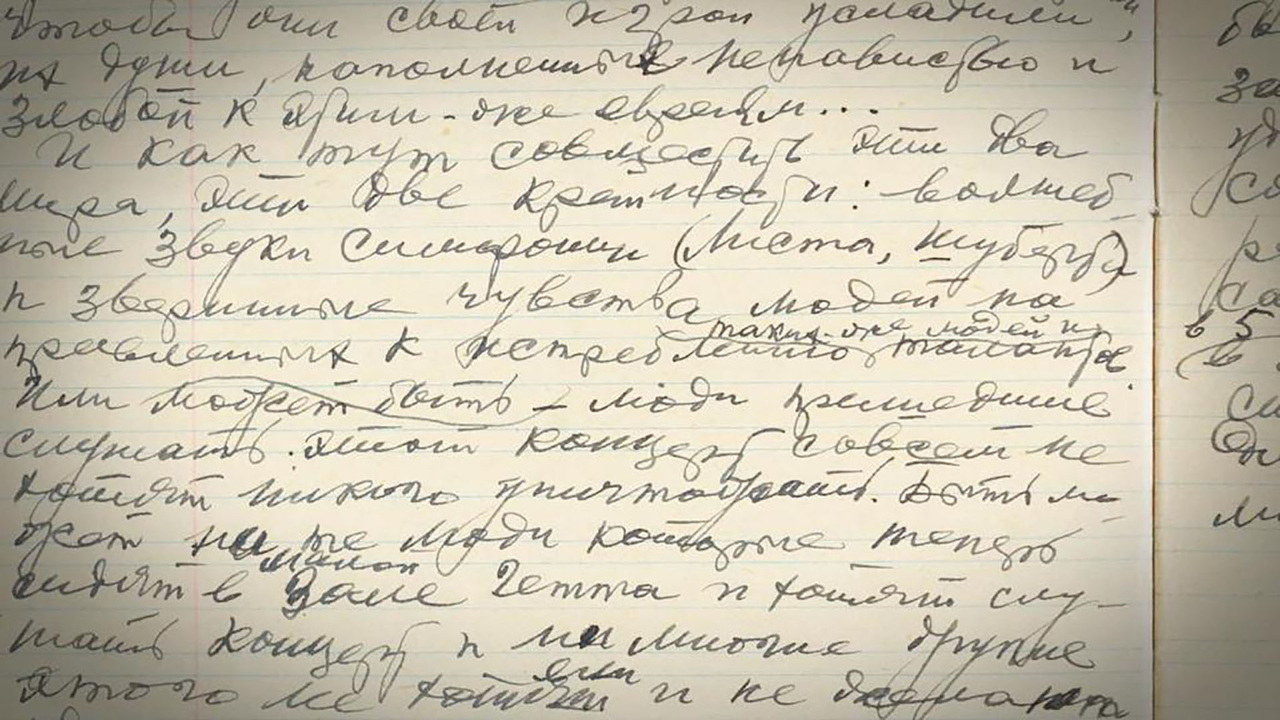 чтобы они своей игрой усладили
их души, наполненные ненавистью и
злобой к этим-же евреям...
И как тут совместить эти два
мира, эти две крайности: волшеб-
ные звуки симфонии (Листа, Шуберта)
и звериные чувства людей на
правленных к истреблению таких-же людей и таланты.
Или может быть – люди пришедшие
слушать этот концерт совсем не
хотят никого уничтожать. Быть мо-
жет ни те люди которые теперь
сидят в малом Зале Гетта и хотят слу-
шать концерт и ни многие другие
этого не хотят и не